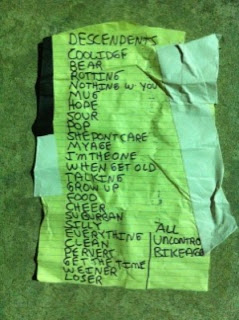 DESCENDENTS
COOLIDGE
BEAR
ROTTING
NOTHING W. YOU
MUG
HOPE
SOUR
POP
SHE DONT CARE
MYAGE
I'M THE ONE
WHEN GET OLD
TALKING
GROW UP
FOOD
CHEER
SUBURBAN
SILLY
EVERYTHING
CLEAN
PERVERT
GET THE TIME
WEINER
LOSER
ALL
UNCONTRO
BIKEAGE